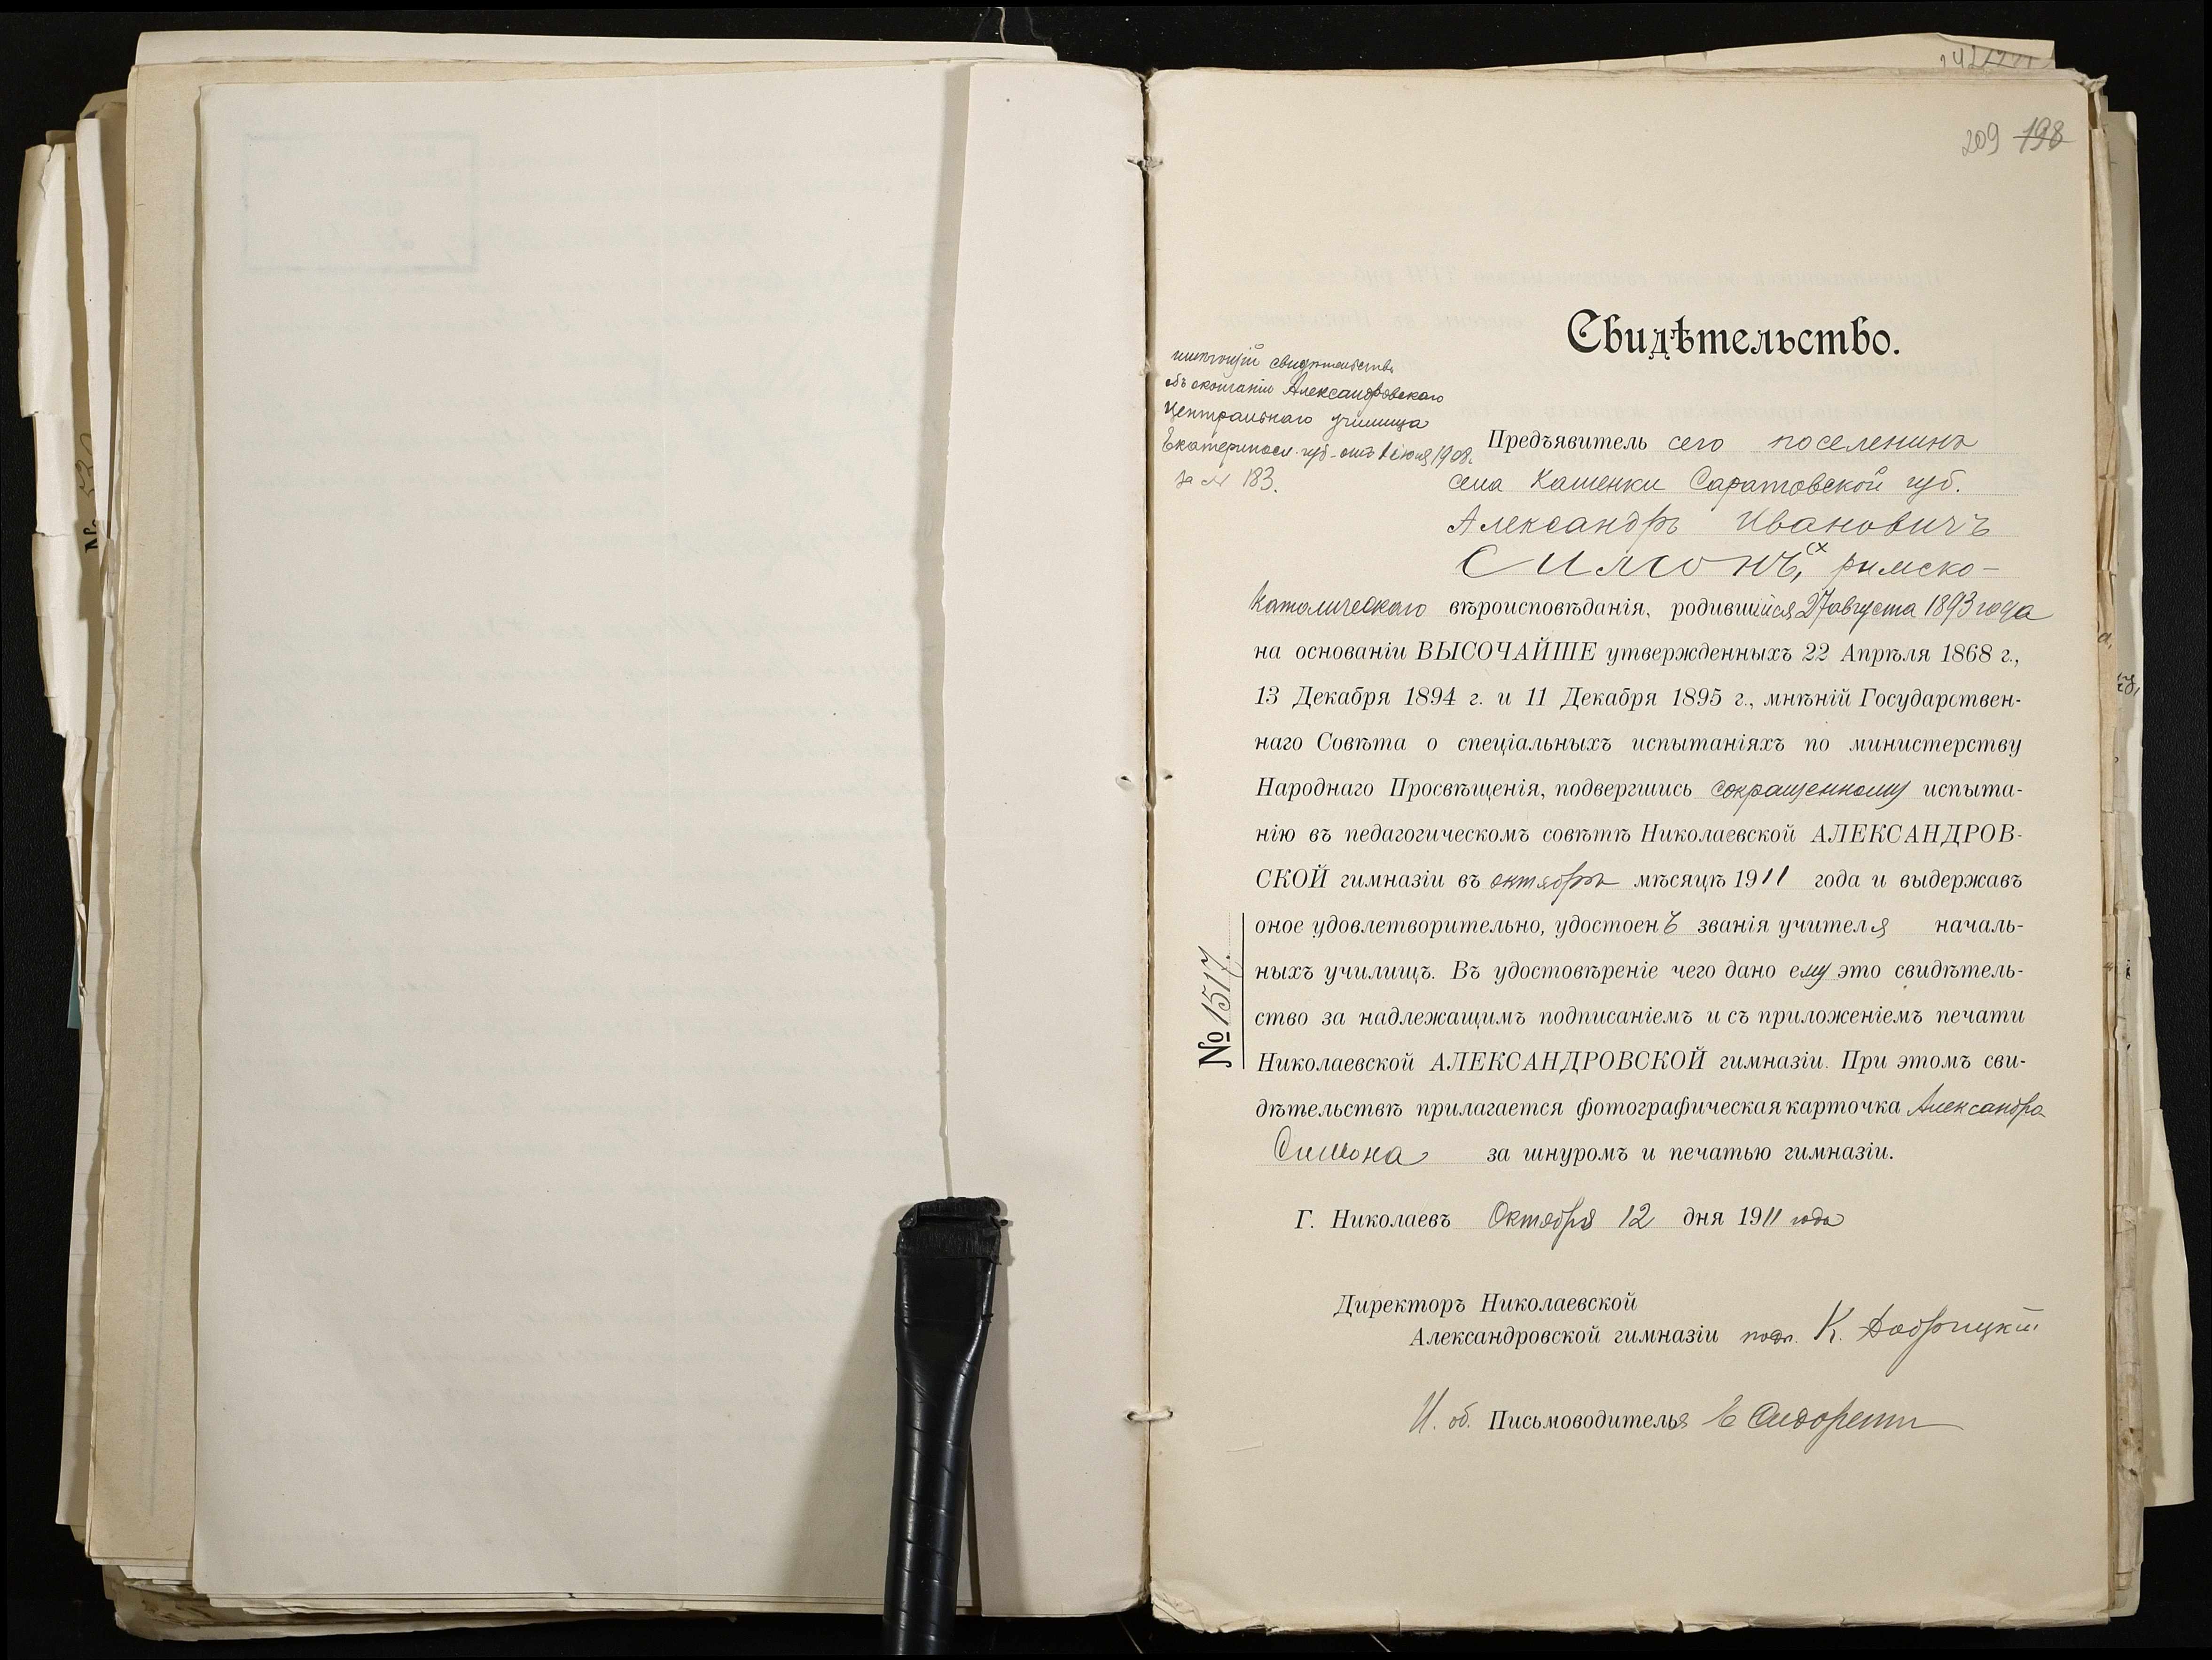 209 198
Свидѣтельство.
имѣющій свидѣтельство
объ окончаніи Александровскаго
Центральнаго училища
Екатериносл. губ. отъ 1 іюня 1908.
за № 183.
Предъявитель сего поселенинъ
села Каменки Саратовской губ.
Александръ Ивановичъ
Симонъ, римско-
католическаго вѣроисповѣданія, родившійся 27 августа 1893 года
на основаніи ВЫСОЧАЙШЕ утвержденныхъ 22 Апрѣля 1868 г.,
13 Декабря 1894 г. и 11 Декабря 1895 г., мнѣній Государствен-
наго Совѣта о спеціальныхъ испытаніяхъ по министерству
Народнаго Просвѣщенія, подвергшись сокращенному испыта-
нію въ педагогическомъ совѣтѣ Николаевской АЛЕКСАНДРОВ-
СКОЙ гимназіи въ октябрѣ мѣсяцѣ 1911 года и выдержавъ
оное удовлетворительно, удостоенъ званія учителя началь-
ныхъ училищъ. Въ удостовѣреніе чего дано ему это свидѣтель-
ство за надлежащимъ подписаніемъ и съ приложеніемъ печати
Николаевской АЛЕКСАНДРОВСКОЙ гимназіи. При этомъ сви-
дѣтельствѣ прилагается фотографическая карточка Александра
Симона за шнуромъ и печатью гимназіи.
№ 1517.
Г. Николаевъ Октября 12 дня 1911 года
Директоръ Николаевской
Александровской гимназіи подп. К. Добрицкій
И. об. Письмоводителя